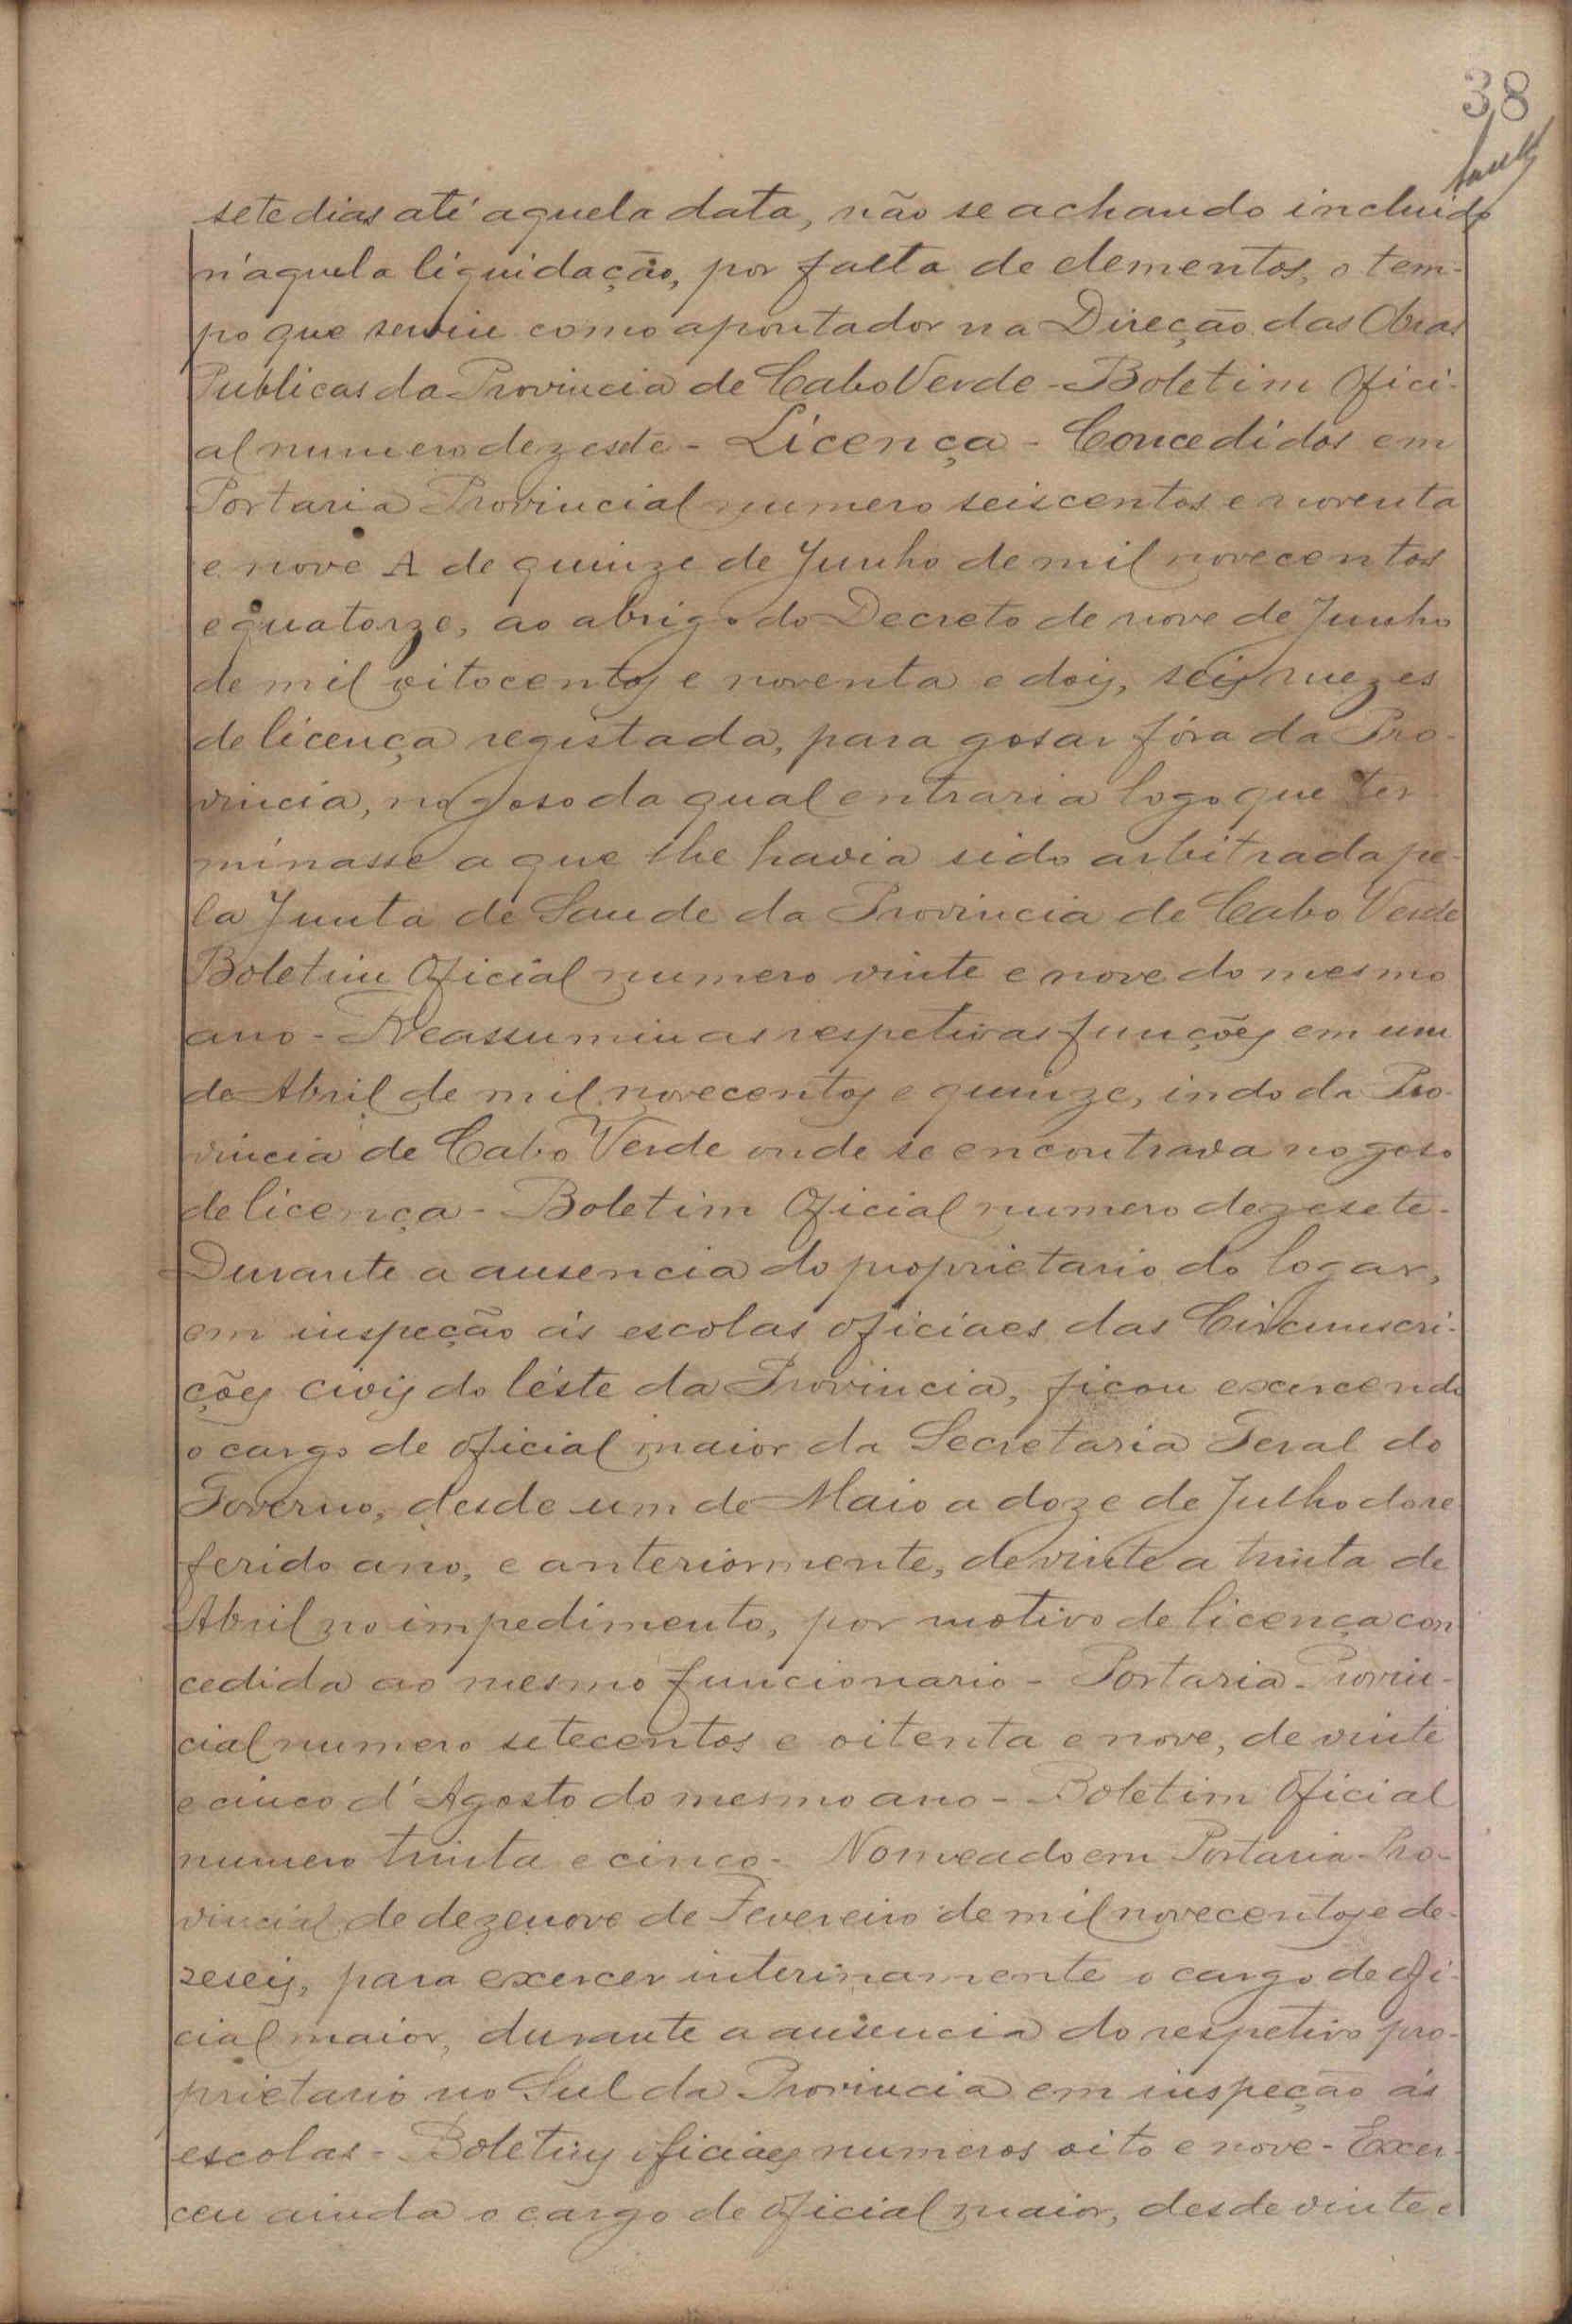 38
sete dias até aquela data, não se achando incluido
n'aquela liquidação, por falta de elementos, o tem-
po que serviu como apontador na Direção das Obras
Publicas da Provincia de Cabo Verde - Boletim Ofici-
al numero dezesete - Licença - Concedidos em
Portaria Provincial numero seiscentos e noventa
e nove A de quinze de Junho de mil novecentos
e quatorze, ao abrigo do Decreto de nove de Junho
de mil oitocentos e noventa e dois, seis mezes
de licença registada, para gosar fóra da Pro-
vincia, no goso da qual entraria logo que ter
minasse a que lhe havia sido arbitrada pe-
la Junta de Saude da Provincia de Cabo Verde
Boletim Oficial numero vinte e nove do mesmo
ano - Reassumiu as respetivas funções em um
de Abril de mil novecentos e quinze, indo da Pro-
vincia de Cabo Verde onde se encontrava no goso
de licença - Boletim Oficial numero dezesete -
Durante a ausencia do proprietario do logar,
em inspeção ás escolas oficiaes das Circunscri-
ções civis do léste da Provincia, ficou exercendo
o cargo de oficial maior da Secretaria Geral do
Governo, desde um de Maio a doze de Julho do re
ferido ano, e anteriormente, de vinte a trinta de
Abril no impedimento, por motivo de licença con
cedida ao mesmo funcionario - Portaria Provin-
cial numero setecentos e oitenta e nove, de vinte
e cinco d'Agosto do mesmo ano - Boletim Oficial
numero trinta e cinco - Nomeado em Portaria Pro-
vincial de dezenove de Fevereiro de mil novecentos e de-
zeseis, para exercer interinamente o cargo de ofi-
cial maior, durante a ausencia do respetivo pro-
prietario no Sul da Provincia em inspeção ás
escolas - Boletins oficiaes numeros oito e nove - Exer-
ceu ainda o cargo de oficial maior, desde vinte e